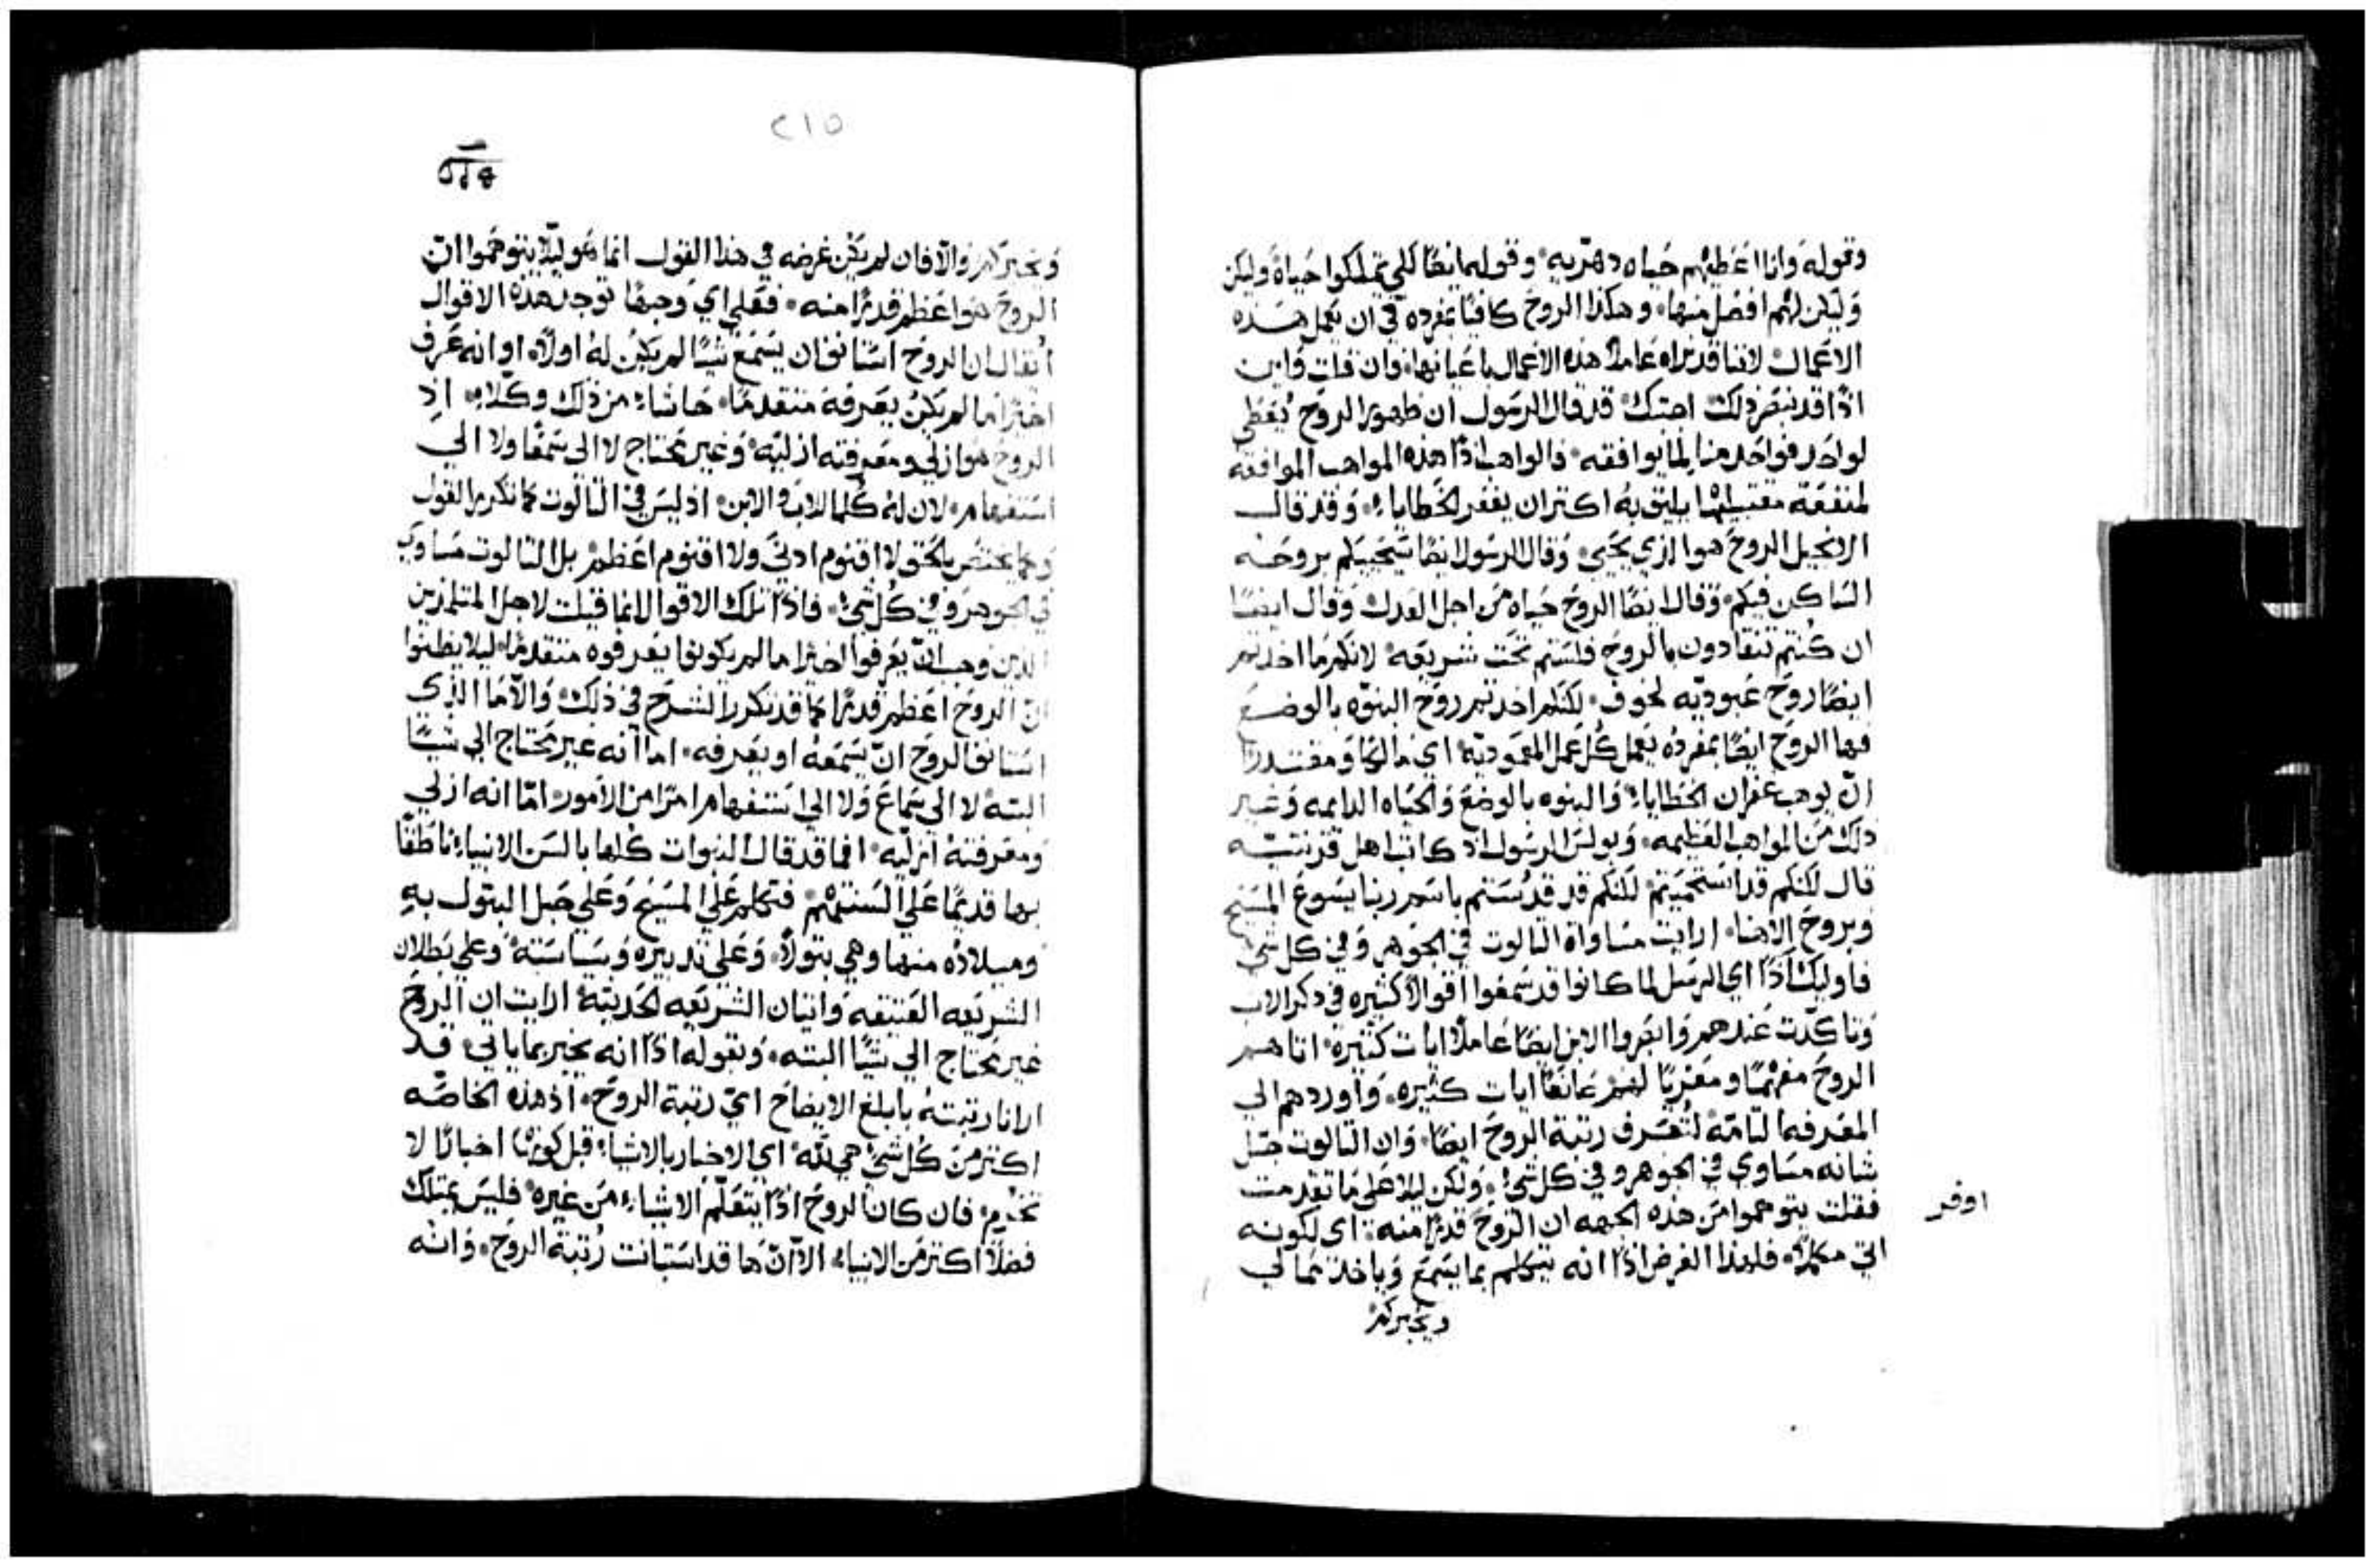 وقوله وانا اعطيهم حياه دهريه وقوله ايضًا لكي تملكوا حياة وليكن
وليكن لهم افضل منها وهكذا الروح كافيًا بمفرده في ان يعمل هذه
الاعمال لاننا قد نراه عاملاً هذه الاعمال باعيانها فان قلت واين
اذًا قد نبصر ذلك اجبتك قد قال الرسول ان ظهور الروح يُعطى
لواحد فواحد منا لما يوافقه فالواهب اذًا هذه المواهب الموافقه
لمنفعة مقتبليها يليق به اكتر ان يغفر الخطايا وقد قال
الانجيل الروح هوا الذي يحيي وقال الرسول ايضًا سيحييكم بروحه
الساكن فيكم وقال ايضًا الروح حياه من اجل العدل وقال ايضًا
ان كنتم تنقادون بالروح فلستم تحت شريعه لانكم ما اخدتم
ايضًا روح عبوديه لخوف لكنكم اخدتم روح البنوه بالوضع
فها الروح ايضًا بمفرده يعمل كل عمل المعموديه اي مالكًا ومقتدرًا
ان يوهب غفران الخطايا والبنوه بالوضع والحياه الدايمه وغير
دلك من المواهب العظيمه وبولس الرسول اد كاتب اهل قرنتيه
قال لكنكم قد استحميتم لكنكم قد قدستم باسم ربنا يسوع المسيح
وبروح الاهنا ارايت مساواة التالوت في الجوهر وفي كل شي
فاوليك اذًا اي الرسل لما كانوا قد سمعوا اقوالاً كثيره في دكر الاب
وتاكدت عندهم وابصروا الابن ايضًا عاملاً ايات كثيره اتاهم
الروح مفهمًا ومعزيًا لهم صانعًا ايات كثيره واوردهم الي
المعرفه التامه لتُعرف رتبة الروح ايضًا وان التالوت جل
شانه مساوي في الجوهر وفي كل شي ولكن ليلا على ما تقدمت
فقلت يتوهموا من هذه الجهه ان الروح قدرًا منه اى لكونه
اوفر
اتي مكملاً فلهذا الغرض اذًا انه يتكلم بما يسمع وياخذ مما لي
ويخبركم
٢١٥
ويخبركم والا فان لم يكن غرضه في هذا القول انما هو ليلا يتوهموا ان
الروح هوا اعظم قدرًا منه فعلى اي وجهًا توجد هذه الاقوال
اتقال ان الروح استانف ان يسمع شيًا لم يكن له اولاً او انه عرف
اخيرًا ما لم يكن يعرفه متقدمًا حاشا من ذلك وكلا اذ
الروح هوا ازلي ومعرفته ازليه وغير محتاج لا الى سمعًا ولا الي
استفهام لان له كلما للاب والابن اذ ليس في التالوت كما تكرر القول
وكما يختص بالحق لا اقنوم ادني ولا اقنوم اعظم بل التالوت مساوي
في الجوهر وفي كل شي فاذًا تلك الاقوال انما قيلت لاجل المتلمذين
الذين وجب ان يعرفوا اخيرًا ما لم يكونوا يعرفوه متقدمًا ليلا يظنوا
ان الروح اعظم قدرًا كما قد تكرر الشرح في ذلك والا ما الذي
استانف الروح ان يسمعه او يعرفه اما انه غير محتاج الي شيًا
البته لا الى سماع ولا الي استفهام امرًا من الامور امّا انه ازلي
ومعرفته ازليه افما قد قال النبوات كلها بالسن الانبياء ناطقًا
بها قديمًا على السنتهم فتكلم علي المسيح وعلي حبل البتول به
وميلاده منها وهي بتولاً وعلي تدبيره وسياسته وعلي بطلان
الشريعه العتيقه واتيان الشريعه الحديته ارايت ان الروح
غير محتاج الي شيًا البته وبقوله اذًا انه يخبر بما ياتي قد
ارانا رتبته بابلغ الايضاح اي رتبة الروح اذ هذه الخاصه
اكتر من كل شي هي لله اي الاخبار بالاشياء قبل كونها اخبارًا لا
تخرم فان كان الروح اذًا يتعلم الاشياء من غيره فليس يمتلك
فضلاً اكتر من الانبياء الا ان ها قد استبانت رتبة الروح وانه